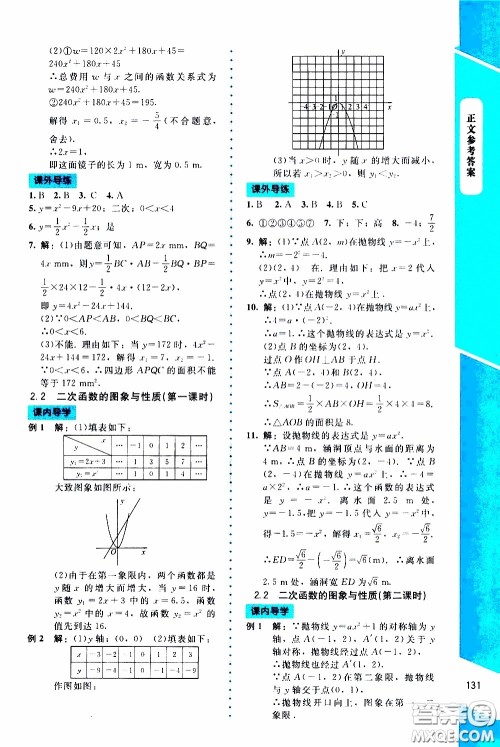 (2)①w=120×2x²+180x+45=
240x²+180x+45.
∴总费用 w 与 x 之间的函数关系式为
w=240x²+180x+45.
②240x²+180x+45=195.
解得 x₁=1/2, x₂=-5/4(不合题意,
舍去).
∴2x=1.
即这面镜子的长为 1 m,宽为 0.5 m.
课外导练
1. B 2. B 3. C 4. A
5. y=x²-9x+20;二次;0<x<4
6. y=1/2x²-1/2x;是
7. 解:(1)由题意可知,AP=2x mm,BQ=
4x mm,则y=1/2BC·AB-1/2BQ·BP=
1/2×24×12-1/2·4x·(12-2x),
即y=4x²-24x+144.
(2)∵0<AP<AB,0<BQ<BC,
∴0<x<6.
(3)不能.理由如下:当 y=172 时,4x²-
24x+144=172.解得 x₁=7,x₂=-1.
又∵0<x<6,∴四边形 APQC 的面积不
能等于 172 mm².
2.2 二次函数的图象与性质(第一课时)
课内导学
例 1 解:(1)填表如下:
x … -1 0 1 2 …
y
y₁=2x+3 … 1 3 5 7 …
y₂=x² … 1 0 1 4 …
大致图象如图所示.
y
O x
(2)由图可得:在第一象限内,两个函数都是
y 随 x 的增大而增大.当 y=16 时,
函数 y₁=2x+3 中的 x=6.5,函数
y₂=x² 中的 x=4,∴函数 y₂=x² 的
值先达到 16.
例 2 解:(1)y轴;(0,0) (2)填表如下:
x -3 -2 -1 0 1 2 3
y -9 -4 -1 0 -1 -4 -9
作图如图:
y
-4-3-2-1 1 2 3 4 x
(3)当 x>0 时,y 随 x 的增大而减小,
所以若 x₁>x₂>0,则 y₁<y₂.
课外导练
1. B 2. A 3. C 4. A 5. C
6. ①③④⑤⑦ 7. 下;下;高 8. -4;7/2
9. 解:(1)∵点 A(2,m)在抛物线 y=-x² 上,
∴m=-2²=-4.
(2)点(-2,4) 在.理由:把 x=-2 代入
y=x²,得 y=(-2)²=4.
∴点(-2,4)在抛物线 y=x² 上.
10. 解:(1)∵点 A(-2,4)在抛物线 y=ax² 上,
∴4=(-2)²·a.
∴a=1.∴这个抛物线的表达式是 y=x².
(2)点 B 的坐标为(2,4).
过点 O 作 OH⊥AB 于点 H.
∵点 A(-2,4),点 B(2,4),
∴AB=4.∴1/2AB·OH=1/2×4×4=8.
∴△AOB 的面积是 8.
11. 解:设抛物线的表达式是 y=ax²(a≠0).
∵AB=4 m,涵洞顶点与水面的距离为
4 m,∴点 A(-2,-4).∴-4=a×2².∴
a=-1.∴这个涵洞所在抛物线的表达式
是 y=-x².∵离水面 2.5 m 处,即 y=
-1.5,∴-1.5=-x².解得 x₁=√6/2,x₂=-√6/2.
∴ED=√6/2-(-√6/2)=√6.∴离水面
2.5 m 处,涵洞宽 ED 为 √6 m.
2.2 二次函数的图象与性质(第二课时)
课内导学
例 1 解:(1)∵抛物线 y=ax²+1 的对称轴为 y
轴,点 A(-1,2)、点 A′(1,2)关于
y 轴对称,∴抛物线经过点 A(-1,2),
∴抛物线必经过点 A′(1,2).
∴抛物线开口向上,图象在第一、二
象限.
正文参考答案
131
答案圈
MXQE.COM